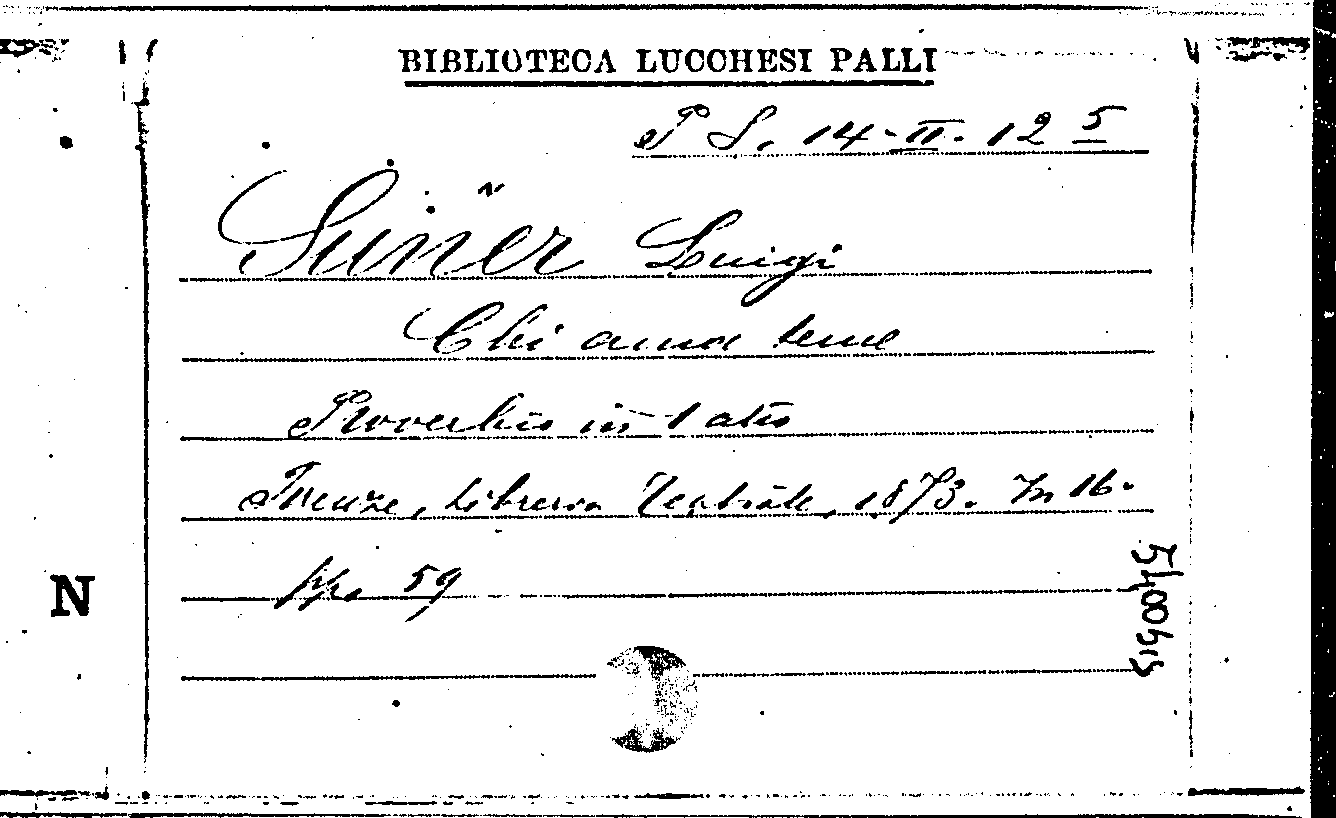 BIBLIOTECA LUCCHESI PALLI
P S. 14-II. 12 5
Suñer Luigi
Chi ama teme
Proverbio in 1 atto
Firenze, Libreria Teatrale, 1873. In 16.
pp. 59
N